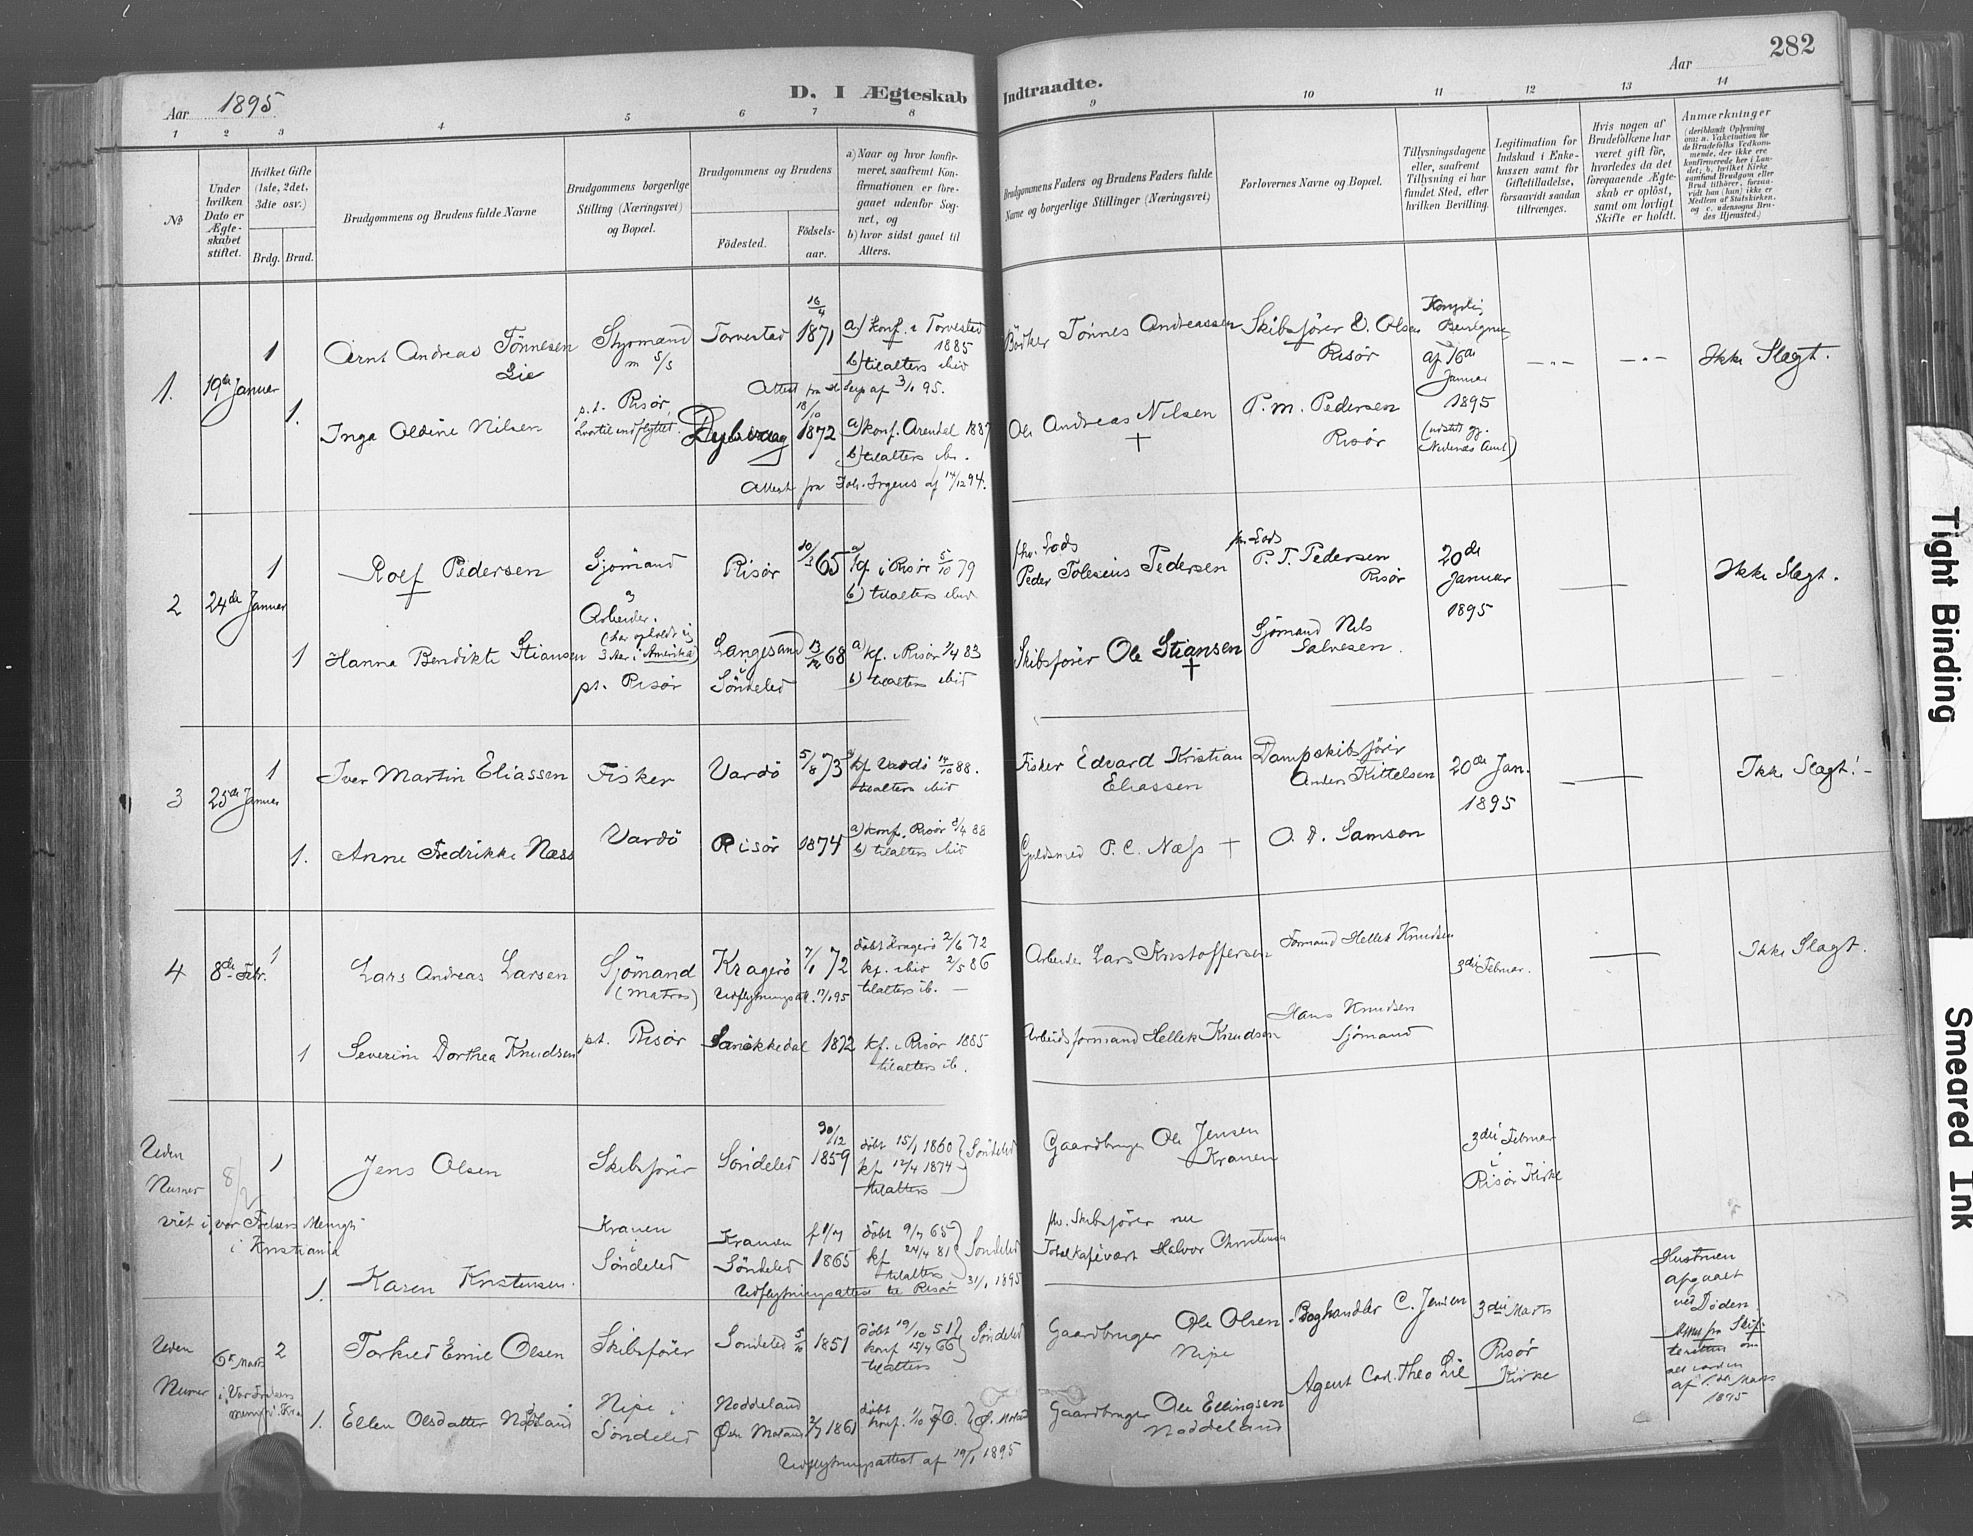 282
Aar 1895.
D. I Ægteskab Indtraadte.
Aar
1 2 3 4 5 6 7 8 9 10 11 12 13 14
No
Under hvilken Dato er Ægte-skabet stiftet.
Hvilket Gifte (1ste, 2det, 3die osv.)
Brdg. Brud.
Brudgommens og Brudens fulde Navne
Brudgommens borgerlige Stilling (Næringsvei) og Bopæl.
Brudgommens og Brudens
Födested.
Födsels-aar.
a) Naar og hvor konfir-meret, saafremt Kon-firmationen er fore-gaaet udenfor Sog-net, og
b) hvor sidst gaaet til Alters.
Brudgommens Faders og Brudens Faders fulde Navne og borgerlige Stillinger (Næringsvei)
Forlovernes Navne og Bopæl.
Tillysningsdagene eller, saafremt Tillysning ei har fundet Sted, efter hvilken Bevilling.
Legitimation for Indskud i Enke-kassen samt for Giftetilladelse, forsaavidt saadan tiltrænges.
Hvis nogen af Brudefolkene har været gift för, hvorledes da det foregaaende Ægte-skab er oplöst, samt om lovligt Skifte er holdt.
Anmærkninger
(deriblandt Oplysning om: a. Vakcination for de Brudefolks Vedkom-mende, der ikke ere konfirmerede her i Lan-det; b. hvilket Kirke-samfund Brudgom eller Brud tilhörer, forsaa-vidt han (hun) ikke er Medlem af Statskirken, og c. udensogns Bru-des Hjemsted.)
1. 19de Januar 1
Arnt Andreas Tönnesen Lie
Styrmand m S/S
Torvestad 16/4 1871
a) Konf. i Torvestad 1885
b) tilalters ibid
Attest fra
Bödker Tönnes Andreassen
Skibsförer O. Olsen Risör
af 16de Januar 1895
Ikke Slægt.
1. Inga Oldine Nilsen
p.t. Risör, hvortil indflyttet.
Dybvaag 18/10 1872
a) Konf. Arendal 1887
b) tilalters ib.
Attest fra Irgens af 14/12 94.
Ole Andreas Nilsen †
P. M. Pedersen Risör
2 24de Januar 1
Rolf Pedersen
Sjömand
Risör 65
a) kf i Risör 5/10 79
b) tilalters ibid
fhv. Lods Peder Pedersen
fhv. Lods P. T. Pedersen Risör
20de Januar 1895
Ikke Slægt.
1 Hanna Bendikte Stiansen
Arbeider. (har opholdt sig 3 Aar i Amerika) pt. Risör
Langesund i Söndeled 68
a) kf. i Risör 83
b) tilalters ibid
Skibsförer Ole Stiansen †
Sjömand Nils Salvesen.
3 25de Januar 1
Iver Martin Eliassen
Fisker
Vardö 5/8 73
kf Vardö 88.
tilalters ibid
Fisker Edvard Kristian Eliassen
Dampskibsförer Anders Kittelsen
20de Jan. 1895
Ikke Slægt!
1. Anne Fredrikke Næss
Vardö
Risör 1874
a) konf. Risör 88
b) tilalters ibid
Guldsmed P. C. Næss †
O. A. Samson
4 8de Febr. 1
Lars Andreas Larsen
Sjömand (Matros)
Kragerö 72
Udflytningsatt.
döbt Kragerö 2/6 72
kf. ibid 2/5 86
tilalters ib.
Arbeider Lars Kristoffersen
Formand Hellek Knudsen
3die Februar.
Ikke Slægt.
1 Severine Dorthea Knudsen
pt. Risör
Sannikedal 1872
kf. i Risör 1885
tilalters ib.
Arbeidsformand Hellek Knudsen
Hans Knudsen Sjömand
Uden Numer 8/2 1
Jens Olsen
Skibsförer
Söndeled 30/12 1859
döbt 15/1 1860
kf 12/4 1874
tilalters
Söndeled
Gaardbruger Ole Jensen Kranen
3die Februar i Risör Kirke
viet i vor Frelsers Menigh. i Kristiania
1. Karen Kristensen.
Kranen i Söndeled
Kranen Söndeled 1865
döbt 9/7 65
kf 24/4 81
tilalters
Söndeled
Udflytningsattest til Risör 31/1 1895
fhv. Skibsförer nu Halvor Christensen
Uden Numer 6te Marts 2
i Vor Frelsers menigh. Kra
Torkild Emil Olsen
Skibsförer
Söndeled 1851
döbt 19/10 51
konf 15/4 66
tilalters
Söndeled
Gaardbruger Ole Olsen Nipe
Boghandler C. Jensen
3die Marts Risör Kirke
Hustruen afgaaet ved Döden.
Attest fra Skifteretten
af 1895
1. Ellen Olsdatter Nödeland
Nipe i Söndeled
Noddeland 1861
döbt
konf.
Udflytningsattest af 1895
Gaardbruger Ole Ellingsen Noddeland
Agent Carl Theo Lie
Tight Binding
Smeared Ink